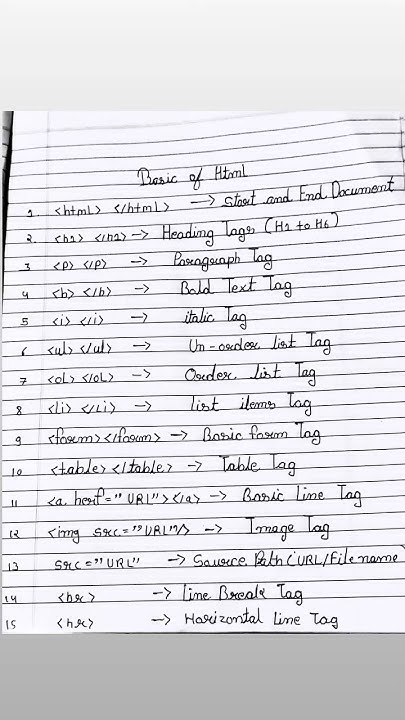 Basic of Html
1. <html> </html> --> Start and End Document
2. <h1> </h1> --> Heading Tags (H1 to H6)
3 <p> </p> --> Paragraph Tag
4 <b> </b> --> Bold Text Tag
5 <i> </i> --> italic Tag
6 <ul> </ul> --> Un-order list Tag
7 <oL> </oL> --> Order list Tag
8 <li> </Li> --> list items Tag
9 <form></form> --> Basic form Tag
10 <table></table> --> Table Tag
11 <a herf="URL"></a> --> Basic line Tag
12 <img src="URL"/> --> Image Tag
13 src="URL" --> Source Path (URL/File name)
14 <br> --> Line Break Tag
15 <hr> --> Horizontal Line Tag